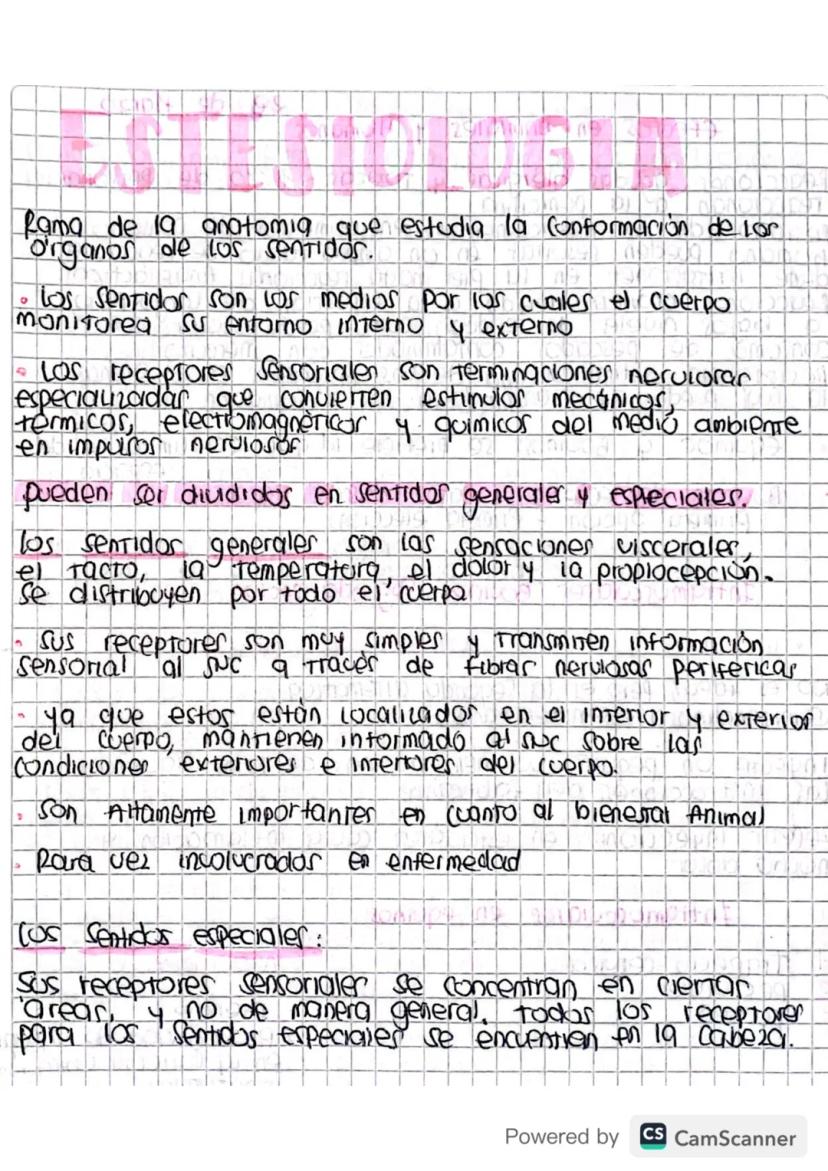 ESTESIOLOGIA
Rama de la anatomia que estudia la conformación de los
órganos de los sentidos.
• Los sentidos son los medios por los cuales el cuerpo
monitorea su entorno interno y externo
• Los receptores sensoriales son terminaciones nerviosas
especializadas que convierten estimulos mecánicos,
térmicos, electromagnéticos y quimicos del medio ambiente
en impulsos nerviosos
pueden ser divididos en sentidos generales y especiales.
Los sentidos generales son las sensaciones viscerales,
el tacto, la temperatura, el dolor y la propiocepción.
Se distribuyen por todo el cuerpo
• Sus receptores son muy simples y transmiten información
sensorial al SNC a través de fibras nerviosas perifericas
• ya que estos están localizados en el interior y exterior
del cuerpo, mantienen informado al SNC sobre las
condiciones exteriores e interiores del cuerpo.
• Son Altamente importantes en cuanto al bienestar Animal
• Rara vez involucrados en enfermedad
Los Sentidos especiales:
Sus receptores sensoriales se concentran en ciertas
áreas, y no de manera general. todos los receptores
para los sentidos especiales se encuentren en la cabeza.
Powered by CS CamScanner